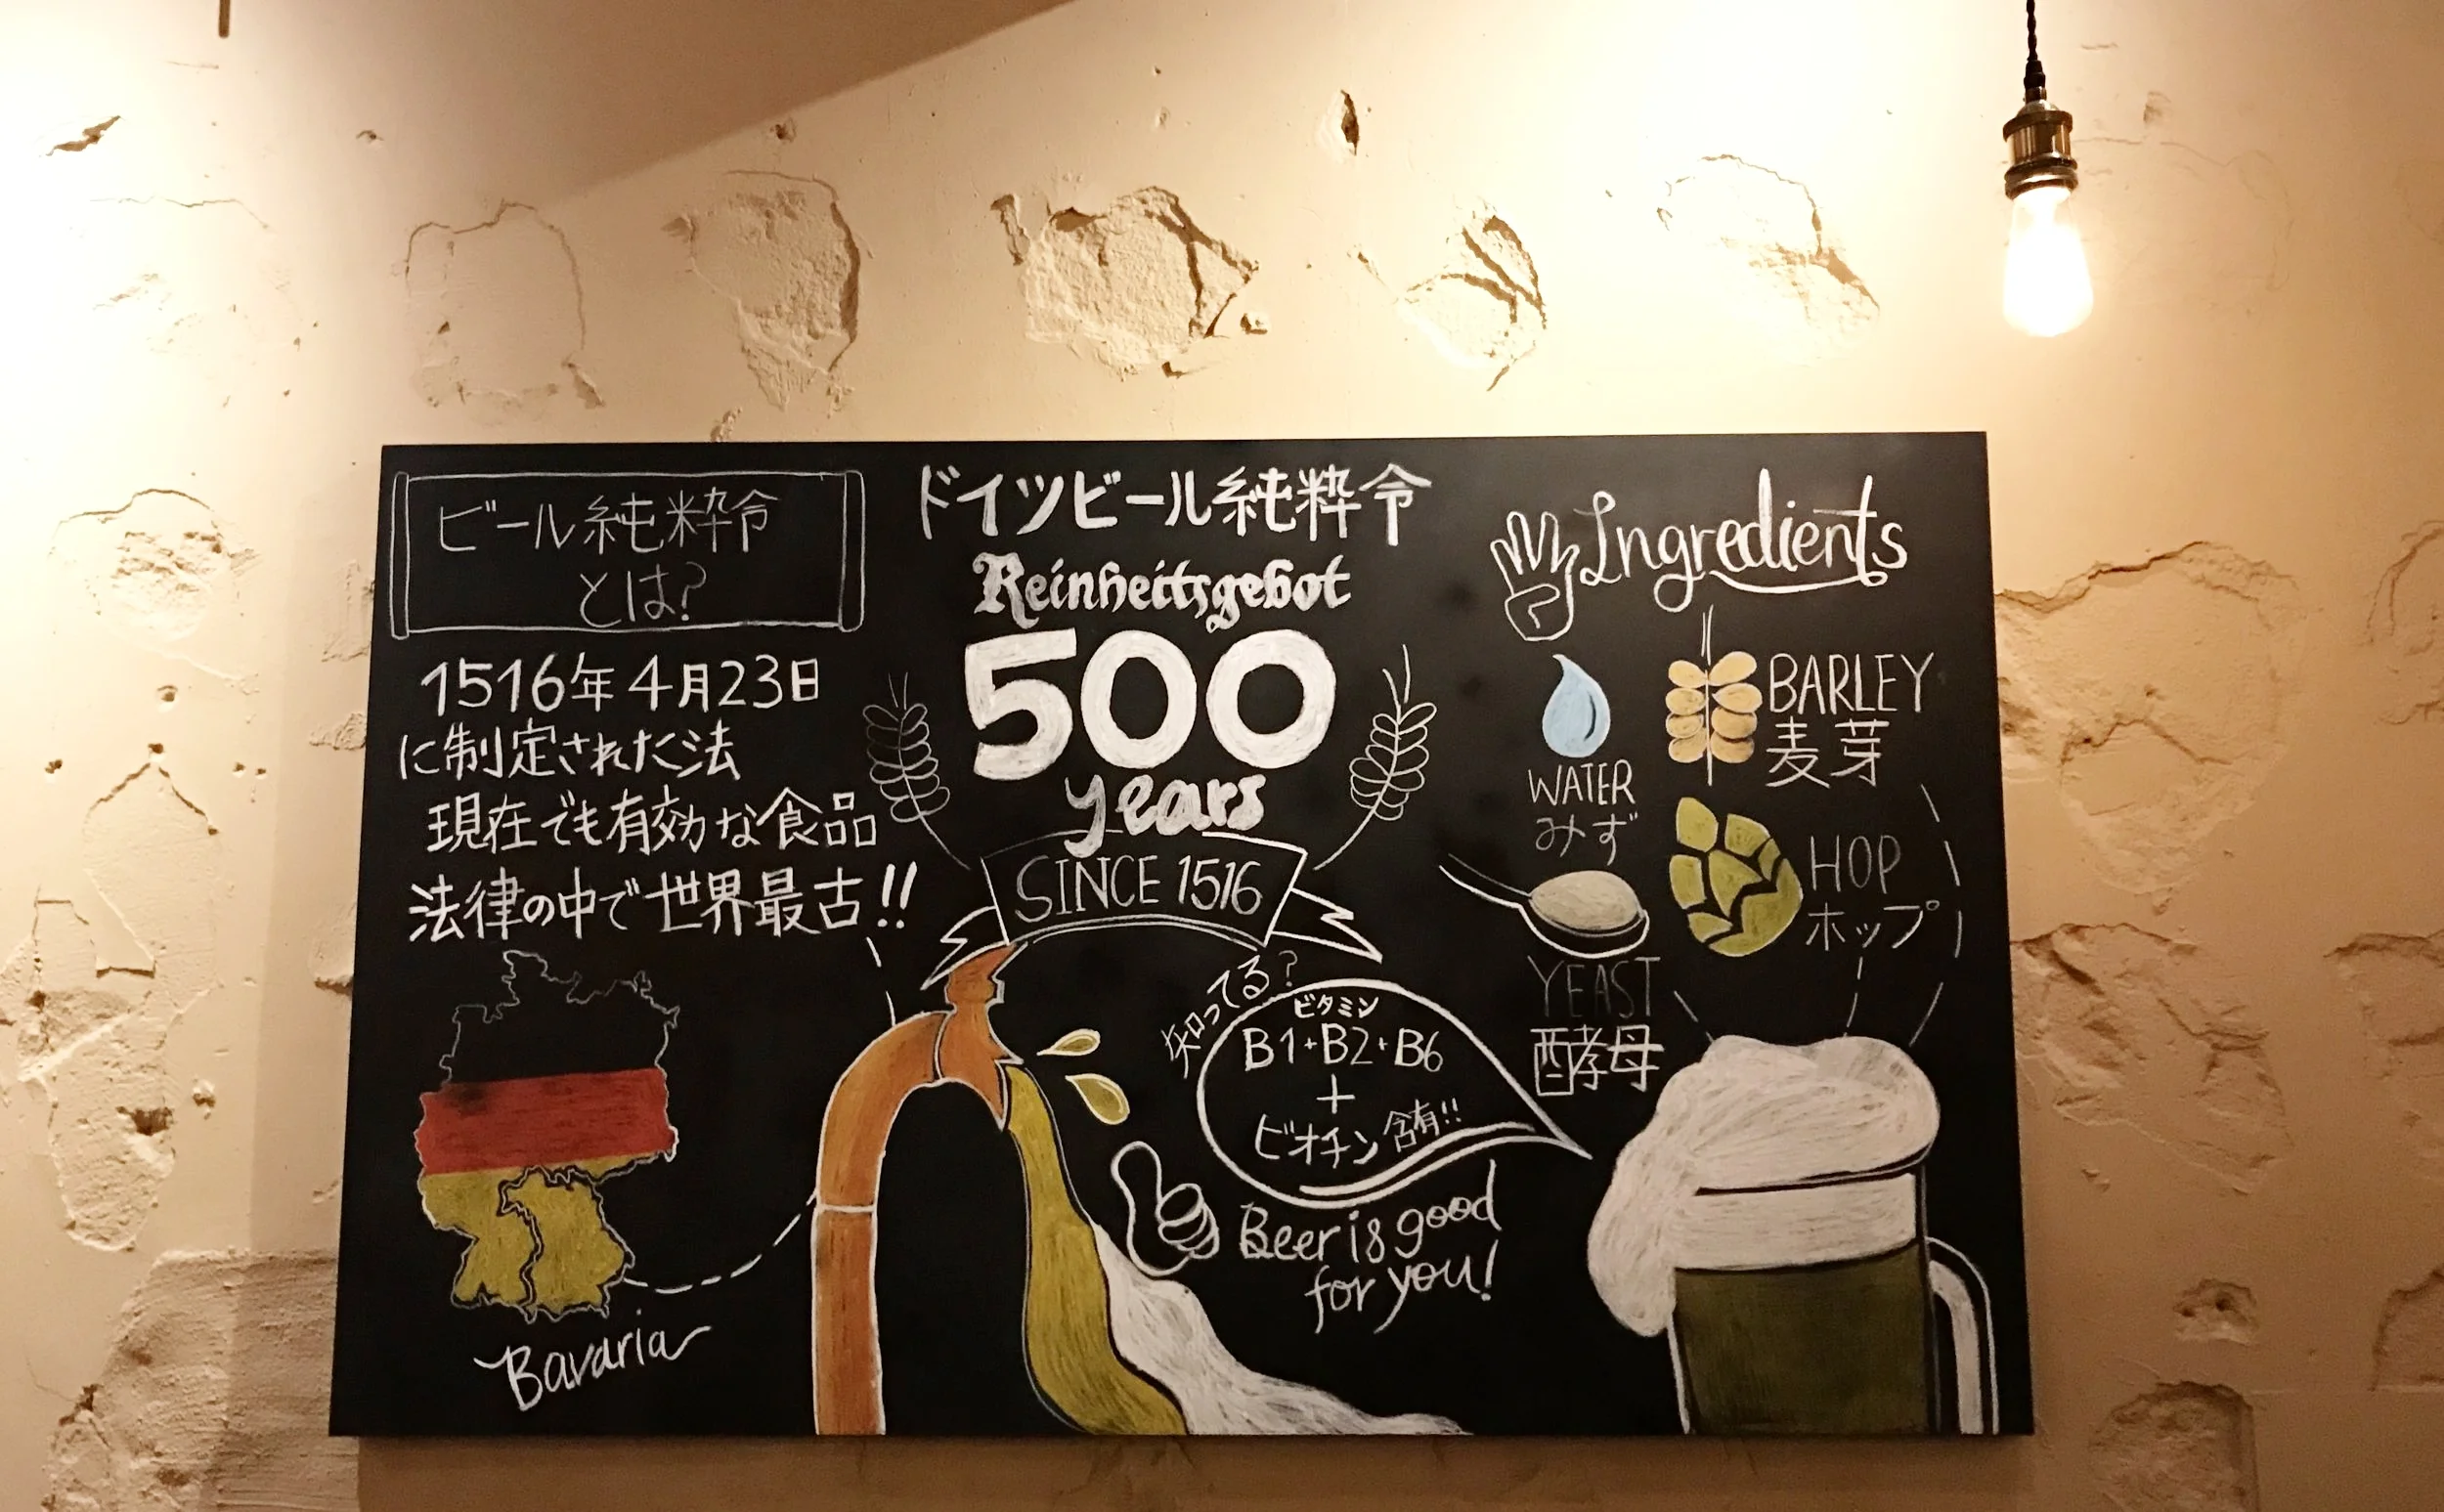 ビール純粋令
とは?
1516年4月23日
に制定された法
現在でも有効な食品
法律の中で世界最古!!
Bavaria
ドイツビール純粋令
Reinheitsgebot
500
years
SINCE 1516
知ってる?
ビタミン
B1+B2+B6
+
ビオチン含有!!
Beer is good
for you!
Ingredients
WATER
みず
BARLEY
麦芽
HOP
ホップ
YEAST
酵母